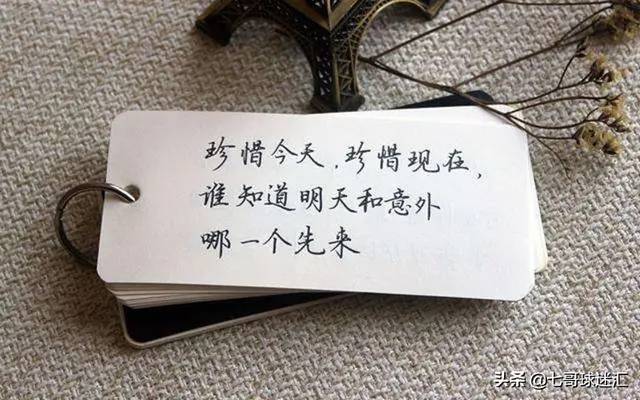 珍惜今天.珍惜现在,
谁知道明天和意外
哪一个先来
头条 @七哥球迷汇